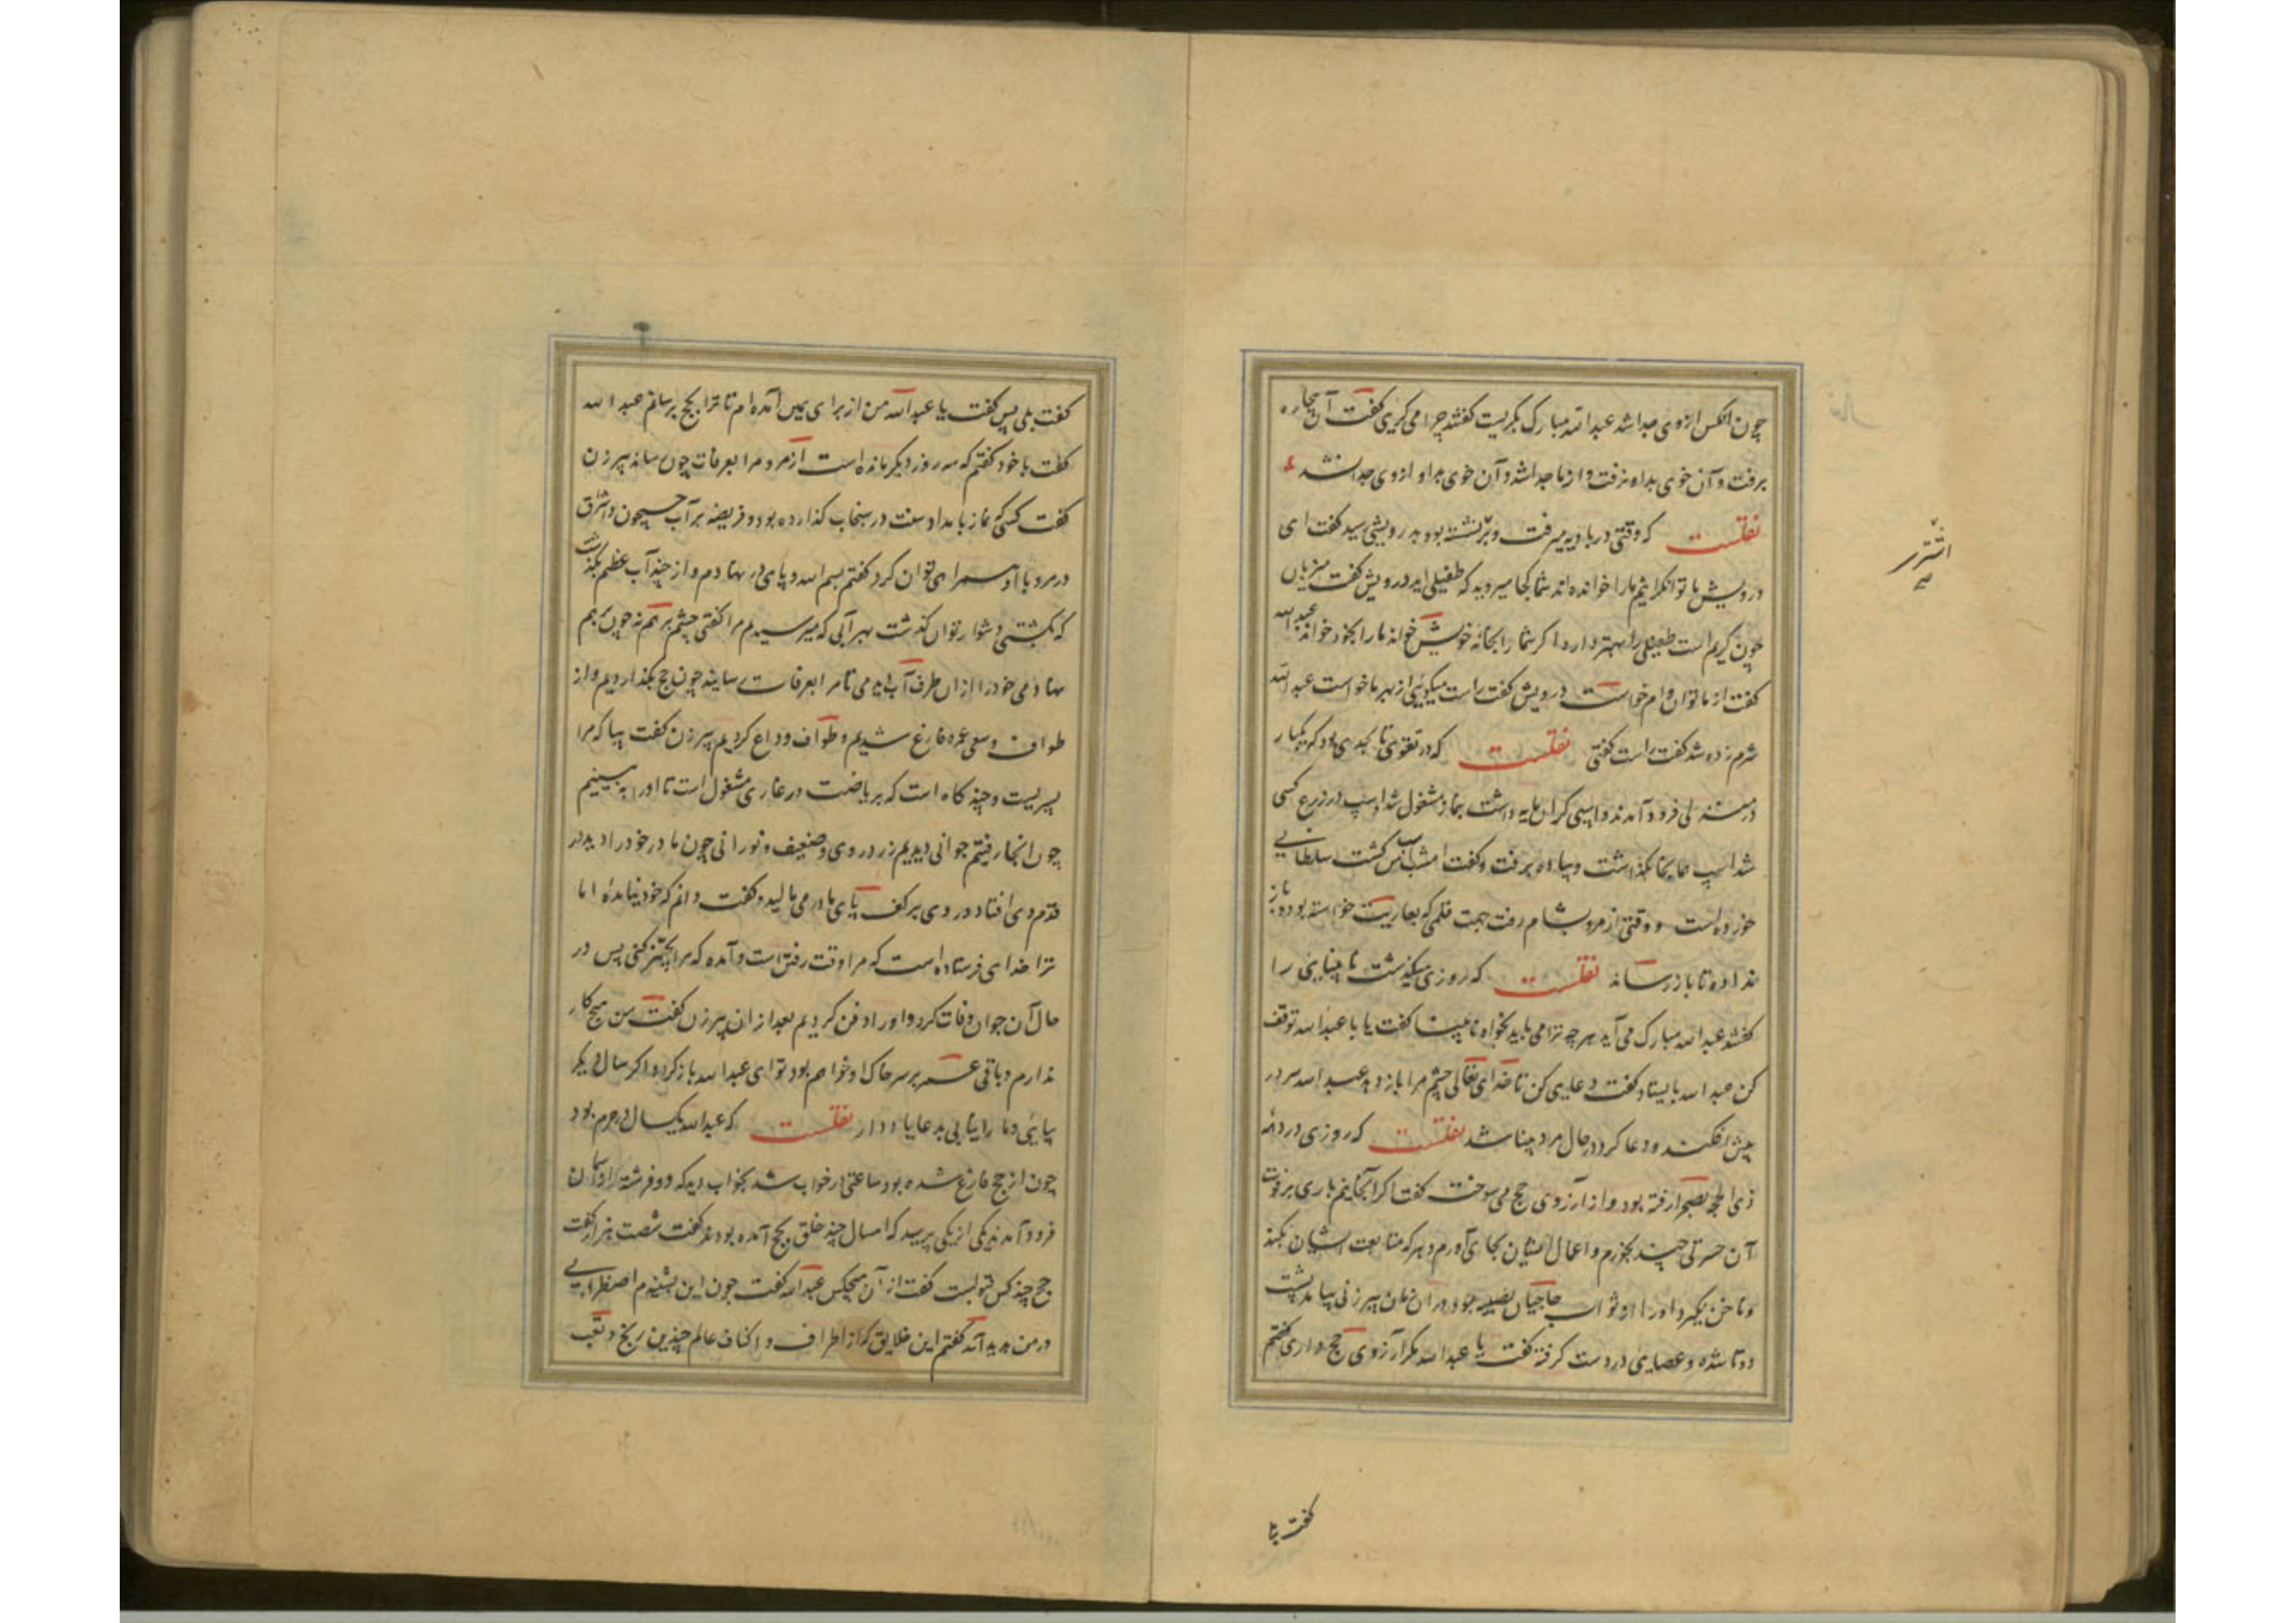 چون انکس ازوی جدا شد عبدالله مبارک بکریست کفتند چرا می کریی کفت آن بیچاره
برفت و آن خوی بد او نرفت و از ما جدا شد و آن خوی بد او ازوی جدا نشد
نقلست که وقتی در بادیه میرفت و بر نشسته بود بدرویشی رسید کفت ای
اشتر
صح
درویش ما توانکرانیم مارا خوانده اند شما کجا میروید که طفیلی اید درویش کفت میزبان
چون کریم است طفیلی را بهتر دارد اکر شما را بخانه خویش خواند ما را بخود خواند عبدالله
کفت از ما توانکران وام خواست درویش کفت راست میکویی از بهر ما خواست عبدالله
شرم زده شد کفت راست کفتی نقلست که در تقوی تا بحدی بود که یکبار
در منزلی فرود آمدند و اسپی کران مایه داشت بنماز مشغول شد اسپ در زرع کسی
شد اسپ همانجا بکذاشت و پیاده برفت و کفت اسپ کشت سلطانی
خورده است و وقتی از مرو بشام رفت جهت قلمی که بعاریت خواسته بود و باز
نداده تا باز رساند نقلست که روزی میکذشت نابینایی را
کفتند عبدالله مبارک می آید هر چه ترا می باید بخواه نابینا کفت یا با عبدالله توقف
کن عبدالله بایستاد کفت دعایی کن تا خدای تعالی چشم مرا باز دهد عبدالله سر در
پیش افکند و دعا کرد در حال مرد بینا شد نقلست که روزی در دهه
ذی الحجه بصحرا رفته بود و از آرزوی حج می سوخت کفت اکر آنجا نیم باری بر فوت
آن حسرتی چند بخورم و اعمال ایشان بجای آورم و هر که متابعت ایشان بکند
و ناخن نکیرد او را از ثواب حاجیان نصیب بود در ان میان پیر زنی بیامد پشت
دوتا شده و عصایی در دست کرفته کفت یا عبدالله مکر آرزوی حج داری کفتم
کفت بلی
کفت بلی پس کفت یا عبدالله من از برای همین آمده ام تا ترا بحج برسانم عبدالله
کفت با خود کفتم که سه روز دیکر مانده است از مرو مرا بعرفات چون رساند پیر زن
کفت کسی که نماز بامداد سنت در سنجاب کذارده بود و فریضه بر آب جیحون و اشراق
در مرو با او همراهی توان کرد کفتم بسم الله و پای در نهادم و از چند آب عظیم بکذشت
که بکشتی دشوار توان کذشت بهر آبی که میرسیدم مرا کفتی چشم بر هم نه چون بهم
نهادمی خود را از ان طرف آب دیدمی تا مرا بعرفات رسانید چون حج بکذاردیم و از
طواف و سعی عمره فارغ شدیم و طواف وداع کردیم پیر زن کفت بیا که مرا
پسریست و چند کاه است که بریاضت در غاری مشغول است تا او را به بینیم
چون انجا رفتیم جوانی دیدیم زرد روی و ضعیف و نورانی چون مادر خود را دید در
قدم وی افتاد و روی بر کف پای مادر می مالید و کفت دانم که خود نیامده اما
ترا خدای فرستاده است که مرا وقت رفتن است و آمده که مرا تجهیز کنی پس در
حال آن جوان وفات کرد و او را دفن کردیم بعد از ان پیر زن کفت من هیچ کار
ندارم و باقی عمر بر سر خاک او خواهم بود تو ای عبدالله باز کرد و اکر سال دیکر
بیایی و مرا نیابی بدعا یاد دار نقلست که عبدالله یکسال در حرم بود
چون از حج فارغ شده بود ساعتی در خواب شد بخواب دید که دو فرشته از آسمان
فرود آمدند یکی از یکی پرسید که امسال چند خلق بحج آمده بودند کفت شصت هزار کفت
حج چند کس قبولست کفت از آن هیچکس عبدالله کفت چون این بشنیدم اضطرابی
در من پدید آمد کفتم این خلایق که از اطراف و اکناف عالم چندین رنج و تعب